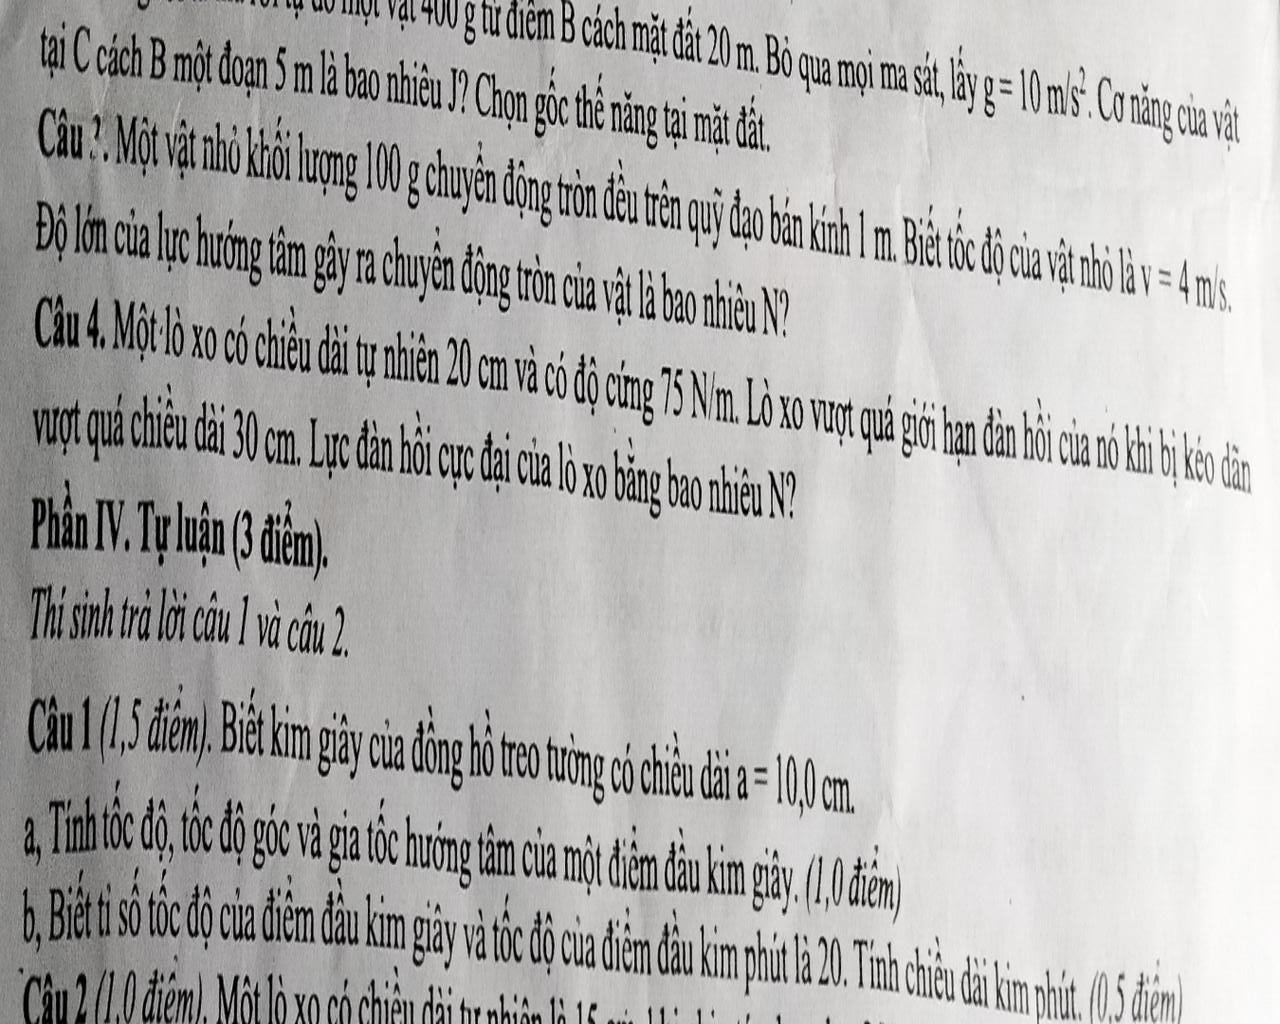 một vật 400 g từ điểm B cách mặt đất 20 m. Bỏ qua mọi ma sát, lấy g = 10 m/s². Cơ năng của vật
tại C cách B một đoạn 5 m là bao nhiêu J? Chọn gốc thế năng tại mặt đất.
Câu 3. Một vật nhỏ khối lượng 100 g chuyển động tròn đều trên quỹ đạo bán kính 1 m. Biết tốc độ của vật nhỏ là v = 4 m/s.
Độ lớn của lực hướng tâm gây ra chuyển động tròn của vật là bao nhiêu N?
Câu 4. Một lò xo có chiều dài tự nhiên 20 cm và có độ cứng 75 N/m. Lò xo vượt quá giới hạn đàn hồi của nó khi bị kéo dãn
vượt quá chiều dài 30 cm. Lực đàn hồi cực đại của lò xo bằng bao nhiêu N?
Phần IV. Tự luận (3 điểm).
Thí sinh trả lời câu 1 và câu 2.
Câu 1 (1,5 điểm). Biết kim giây của đồng hồ treo tường có chiều dài a = 10,0 cm.
a, Tính tốc độ, tốc độ góc và gia tốc hướng tâm của một điểm đầu kim giây. (1,0 điểm)
b, Biết tỉ số tốc độ của điểm đầu kim giây và tốc độ của điểm đầu kim phút là 20. Tính chiều dài kim phút. (0,5 điểm)
Câu 2 (1,0 điểm). Một lò xo có chiều dài tự nhiên là 15